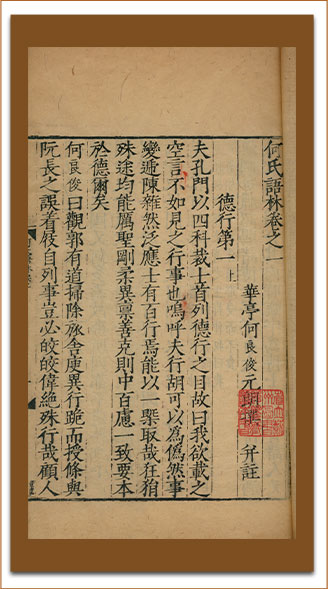 何氏語林卷之一
華亭何良俊元朗撰 并註
德行第一上
夫孔門以四科裁士首列德行之目故曰我欲載之
空言不如見之行事也嗚呼夫行胡可以為偽然事
變遞陳雜然泛應士有百行焉能以一槩取哉狂狷
殊途均能厲聖剛柔異稟善克則中百慮一致要本
於德爾矣
何良俊曰觀郭有道掃除旅舍庾異行跪而授條與
阮長之誤着屐自列事豈必皎皎偉絶殊行哉顧人